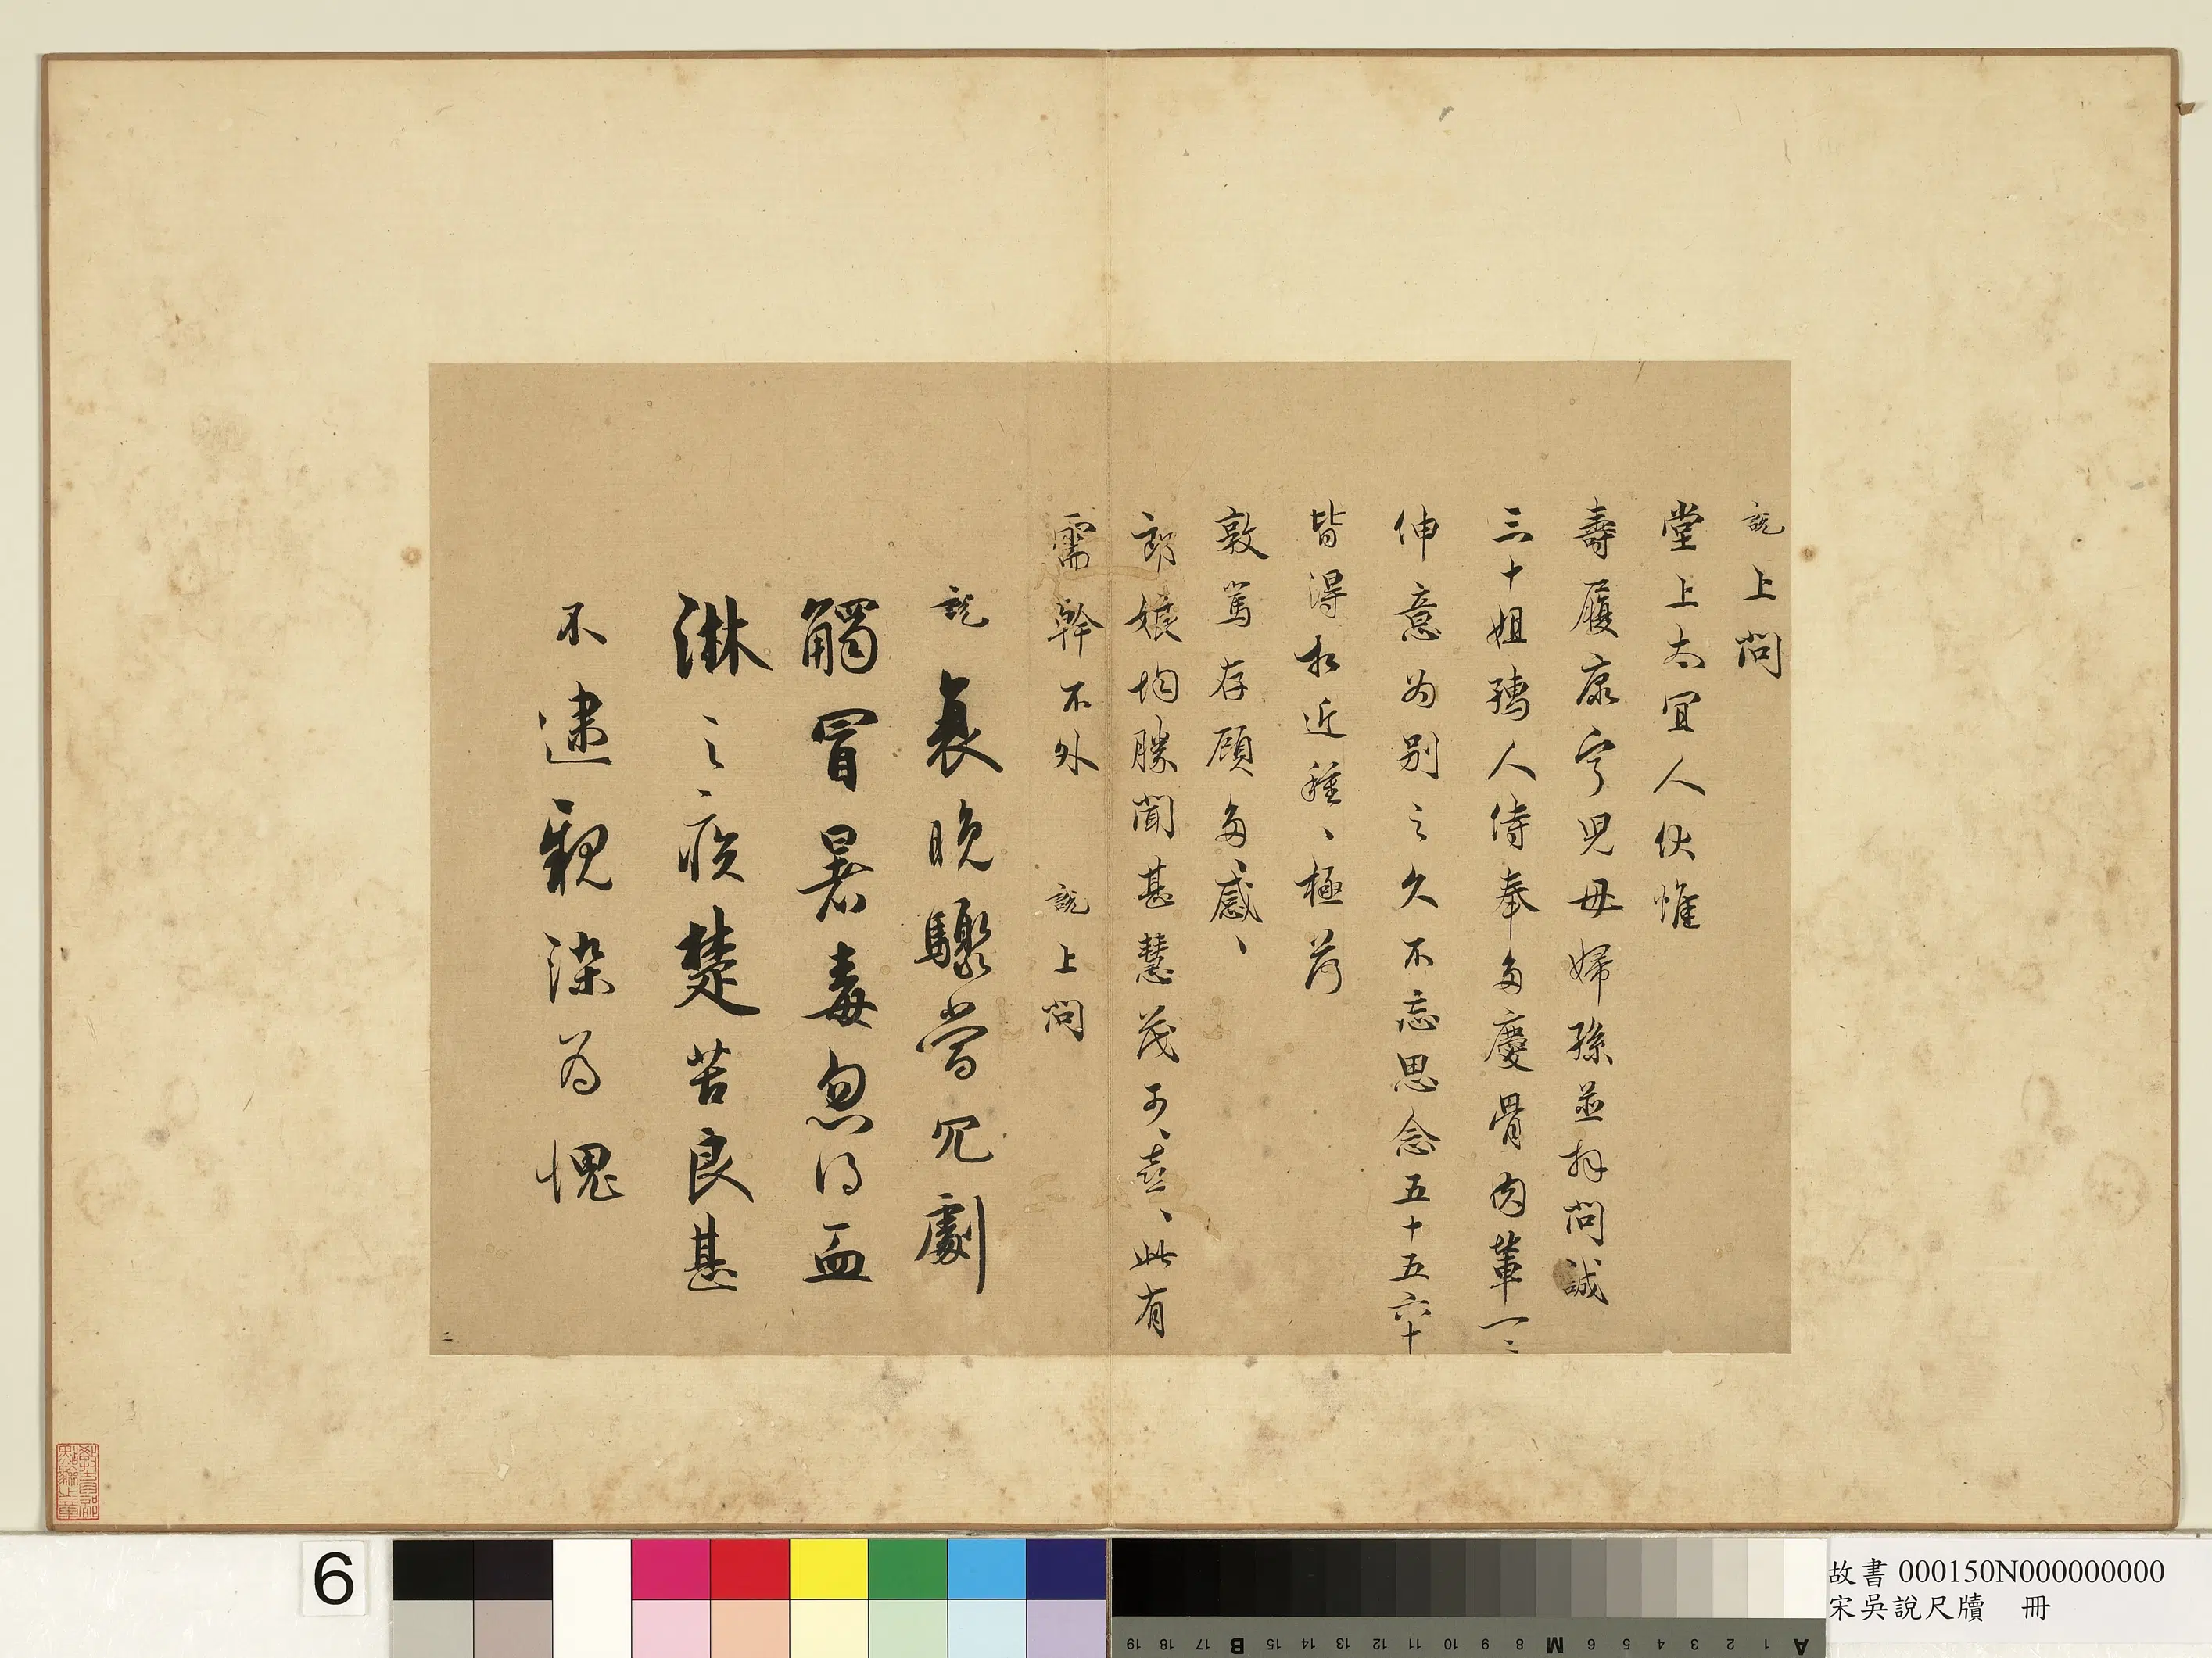 說上問
堂上太宜人伏惟
壽履康寧兒母婦孫並拜問誠
三十姐孺人侍奉多慶骨肉輩一二
伸意為別之久不忘思念五十五六十
皆得於近種、極荷
敦篤存顧多感、
郎娘均勝聞甚慧茂可、喜、此有
需幹不外
說上問
說衰晚驟當冗劇
觸冒暑毒忽得血
淋之疾楚苦良甚
不逮親染為愧
二
6
故書 000150N000000000
宋吳說尺牘 冊
A 1 2 3 4 5 6 M 8 9 10 11 12 13 14 15 B 17 18 19